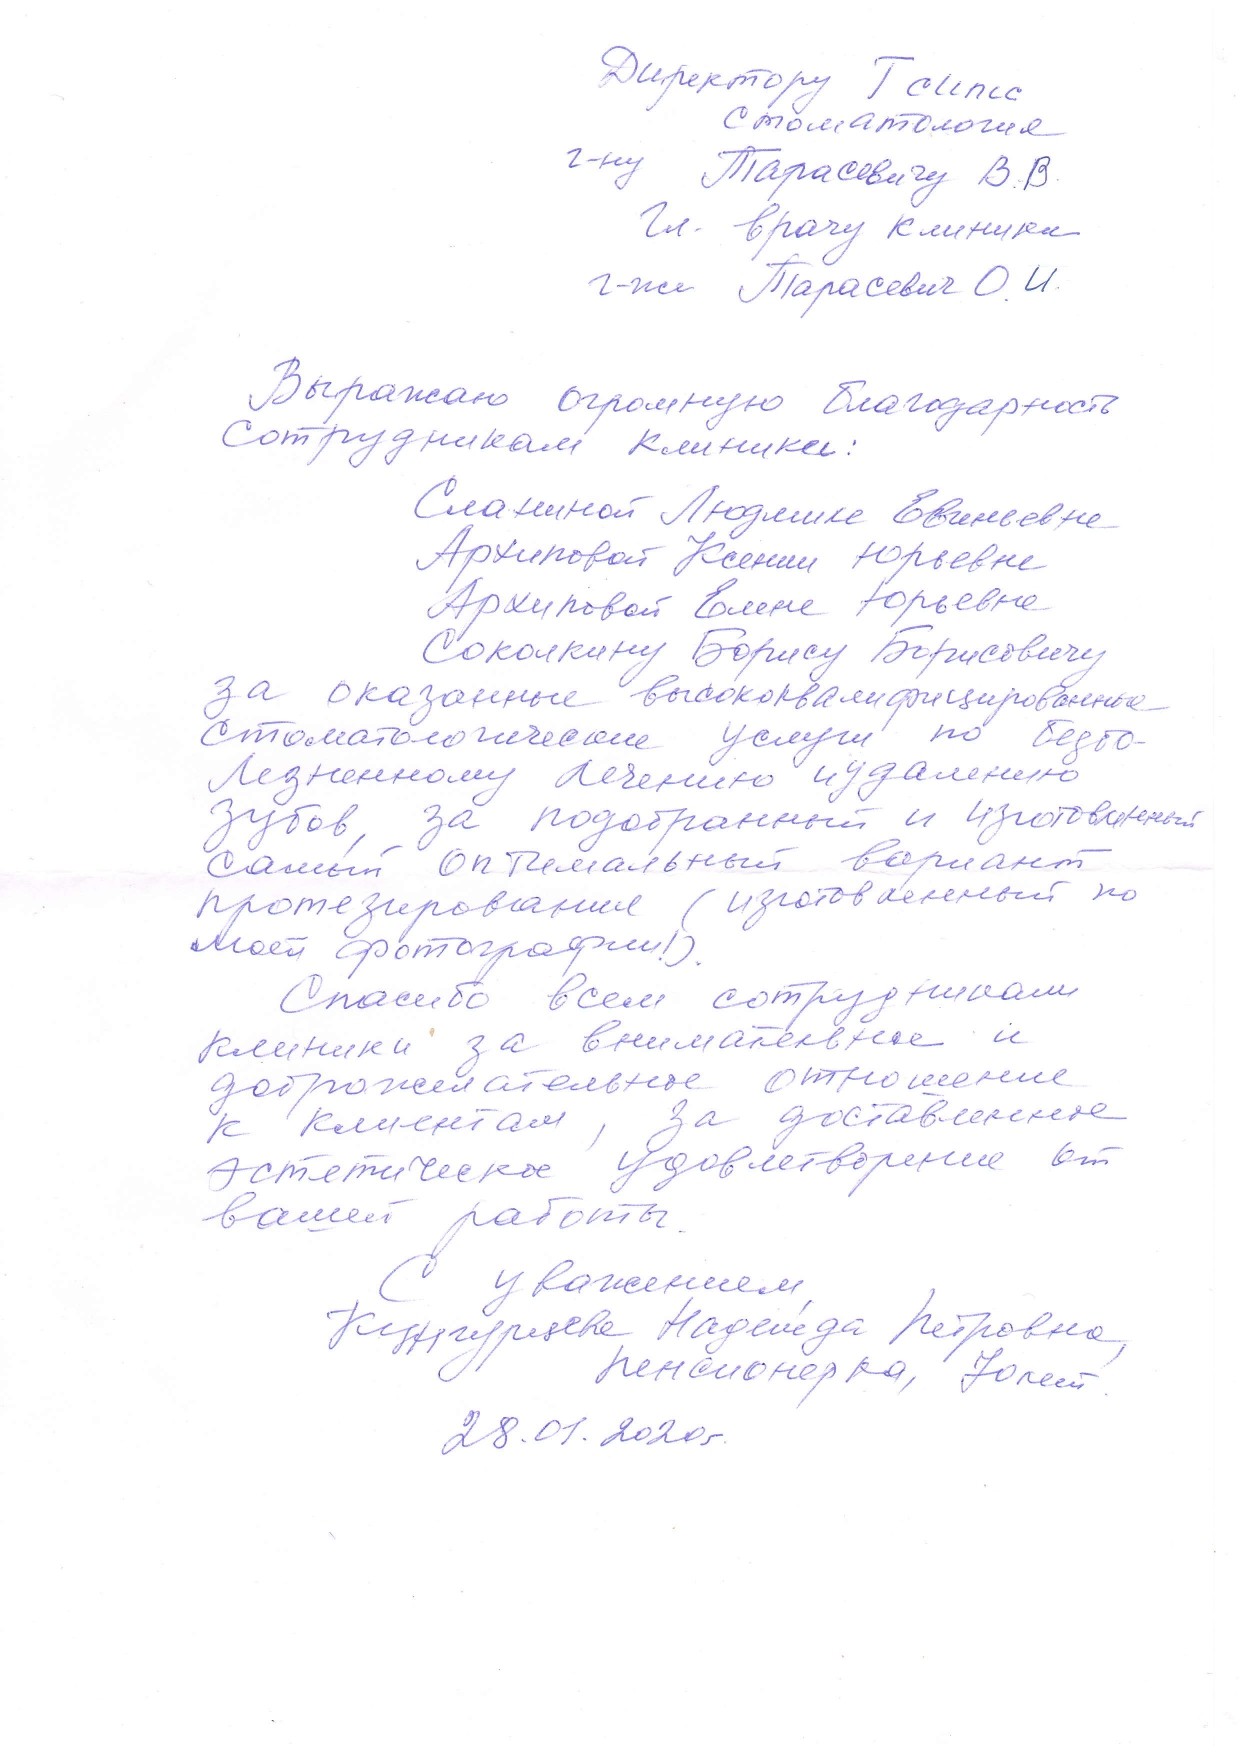 Директору
Стоматология
г-ну Тарасевичу В.В.
Гл. врачу клиники
г-же Тарасевич О.И.
Выражаю огромную благодарность
сотрудникам клиники:
Сланиной Людмиле Евгеньевне
Архиповой Ксении Юрьевне
Архиповой Елене Юрьевне
Соколкину Борису Борисовичу
за оказанные высококвалифицированные
стоматологические услуги по безбо-
лезненному лечению и удалению
зубов, за подобранный и изготовленный
самый оптимальный вариант
протезирования (изготовленный по
моей фотографии!).
Спасибо всем сотрудникам
клиники за внимательное и
доброжелательное отношение
к клиентам, за доставленное
эстетическое удовлетворение от
вашей работы.
С уважением,
Надежда Петровна,
пенсионерка, 70 лет.
28.01.2020г.